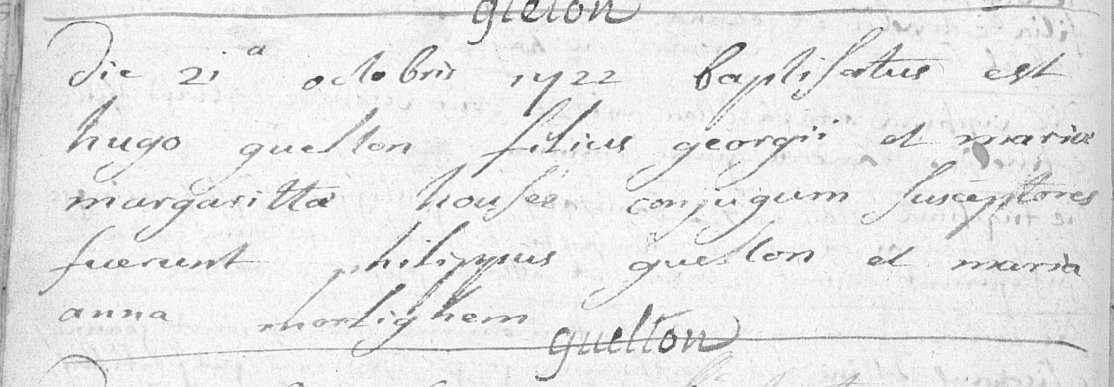 gielon
Die 21a octobris 1722 baptisatus est
hugo quelton filius georgii et mariæ
margarittæ housée conjugum susceptores
fuerunt philippus quelton et maria
anna mortighem
quelton